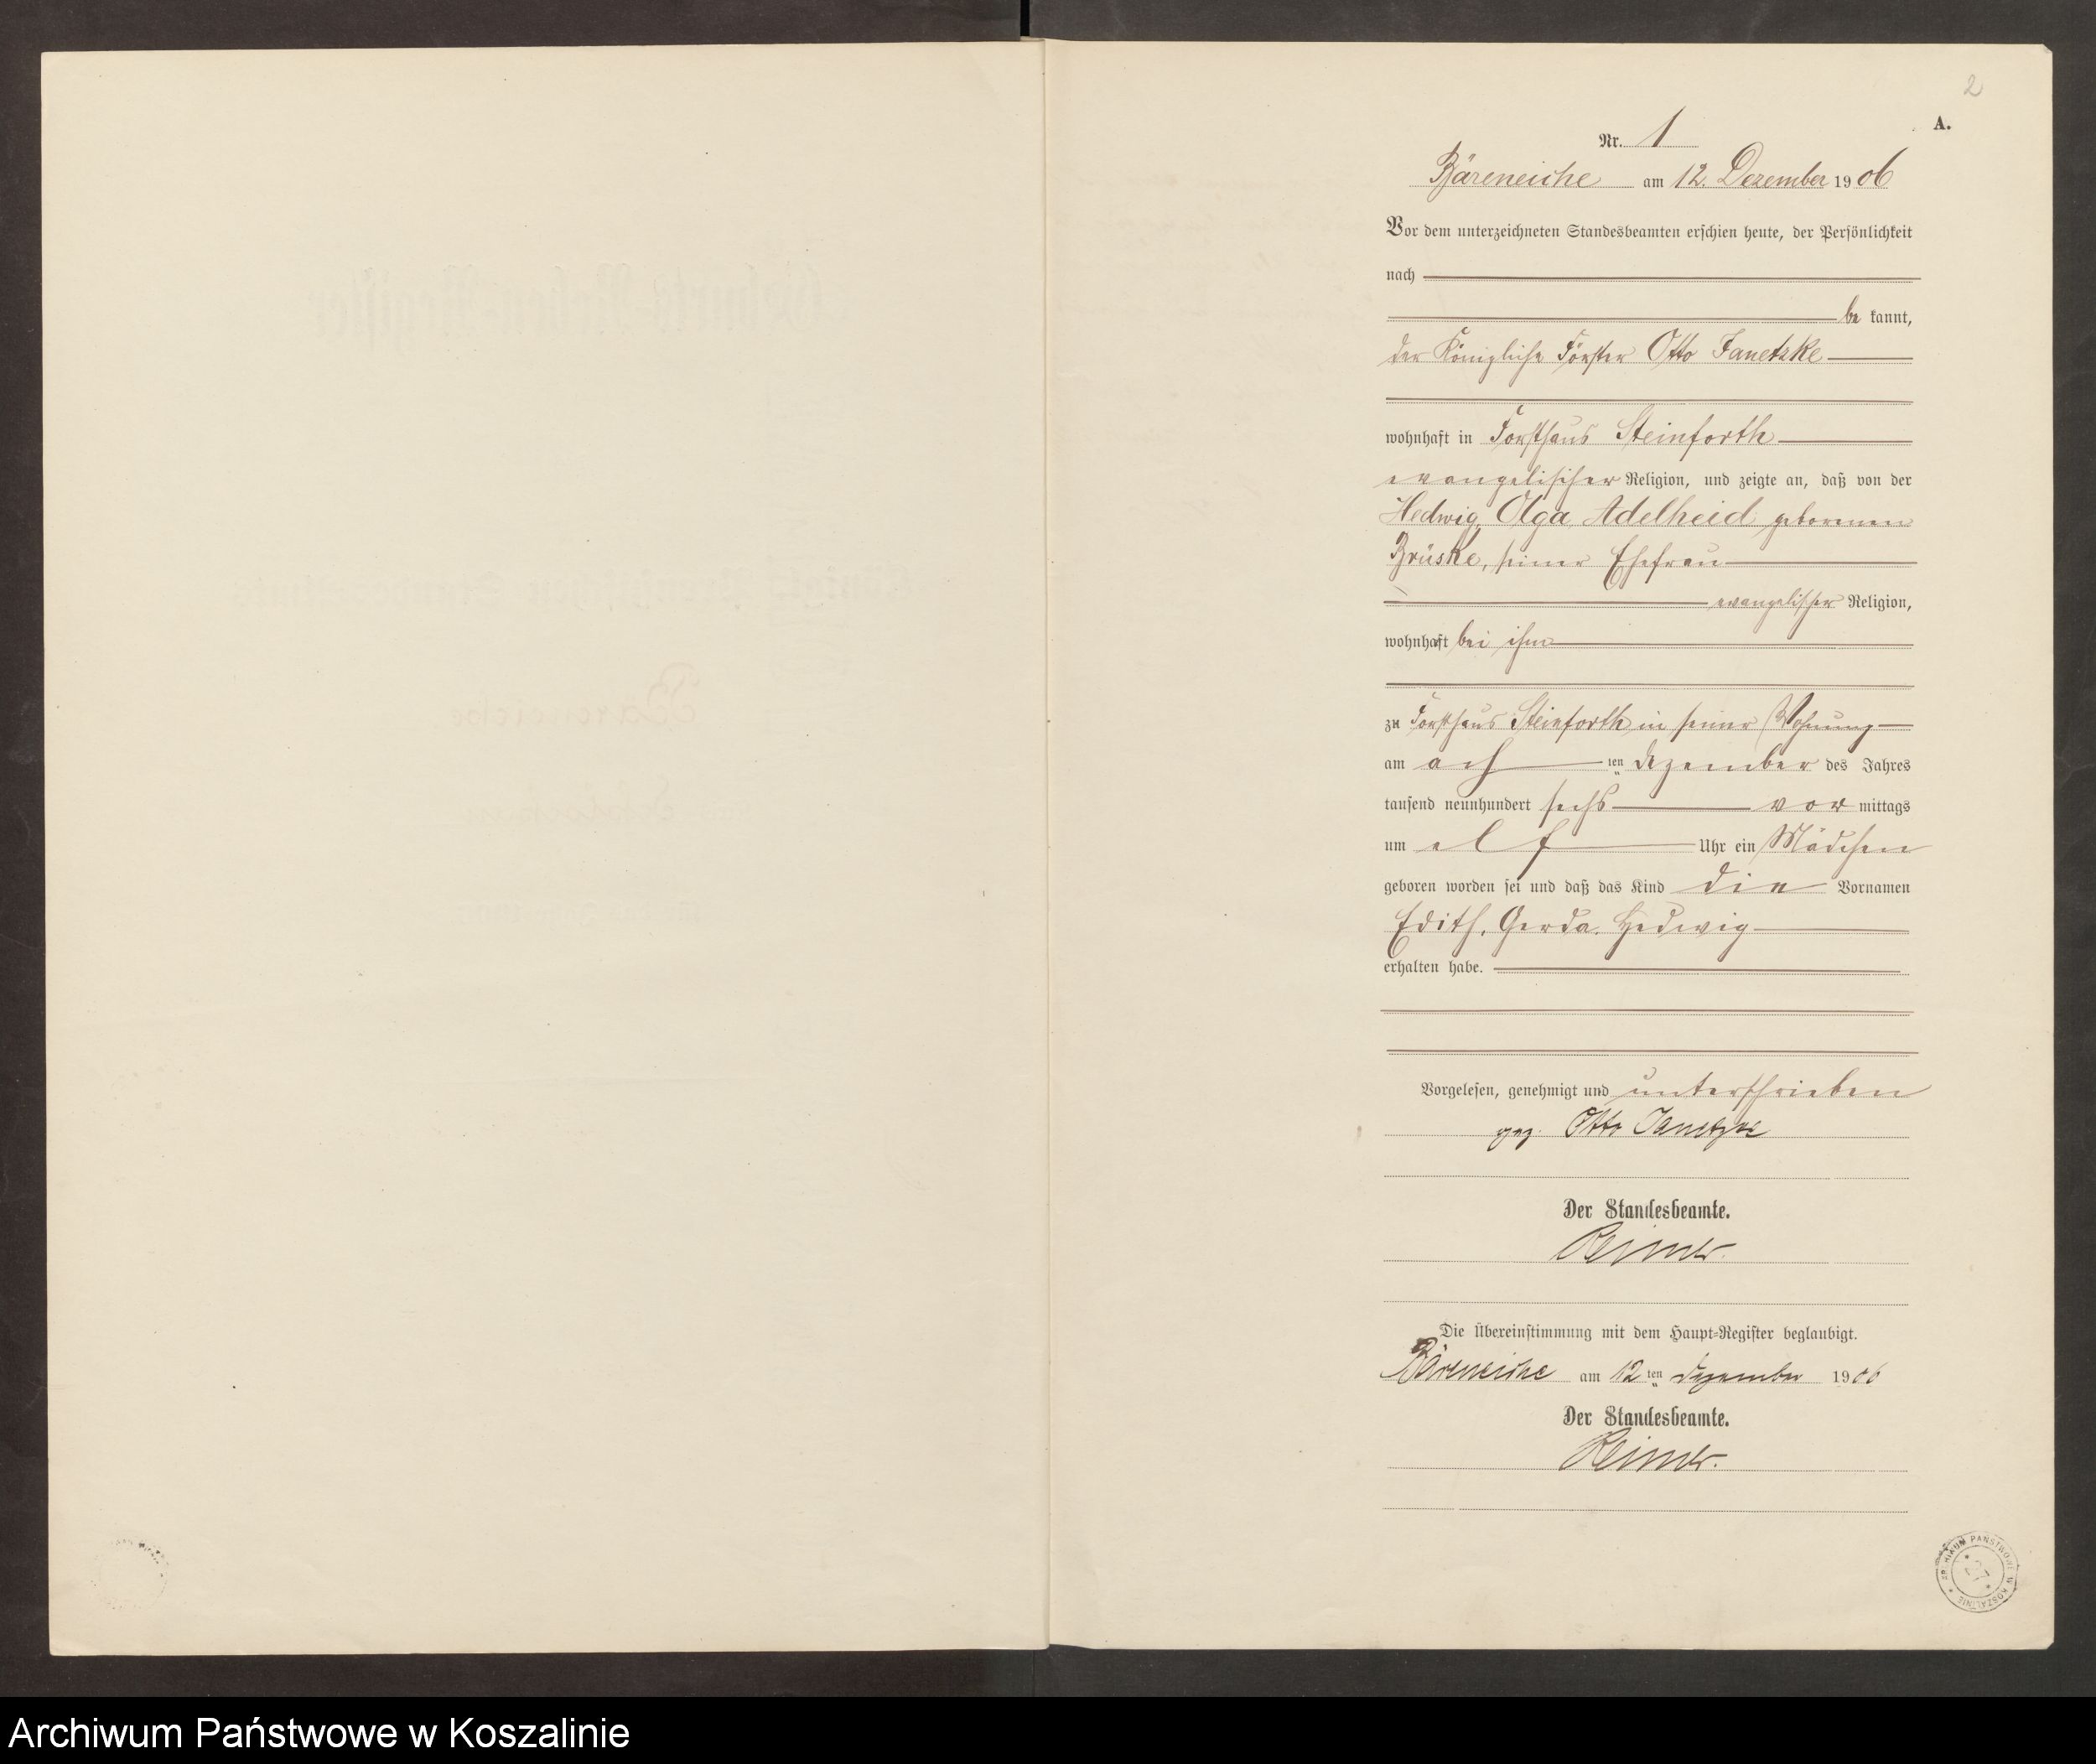 2
A.
Nr. 1
Bäreneiche am 12. Dezember 1906
Vor dem unterzeichneten Standesbeamten erschien heute, der Persönlichkeit
nach
be kannt,
der Königliche Förster Otto Janetzke
wohnhaft in Forsthaus Steinforth
evangelischer Religion, und zeigte an, daß von der
Hedwig, Olga, Adelheid geborenen
Brüske, seiner Ehefrau
evangelischer Religion,
wohnhaft bei ihm
zu Forsthaus Steinforth in seiner Wohnung
am ach ten Dezember des Jahres
tausend neunhundert sechs vor mittags
um elf Uhr ein Mädchen
geboren worden sei und daß das Kind die Vornamen
Edith, Gerda, Hedwig
erhalten habe.
Vorgelesen, genehmigt und unterschrieben
gez. Otto Janetzke
Der Standesbeamte.
Reimer.
Die Übereinstimmung mit dem Haupt-Register beglaubigt.
Bäreneiche am 12 ten Dezember 1906
Der Standesbeamte.
Reimer.
ARCHIWUM PAŃSTWOWE W KOSZALINIE
27
Archiwum Państwowe w Koszalinie